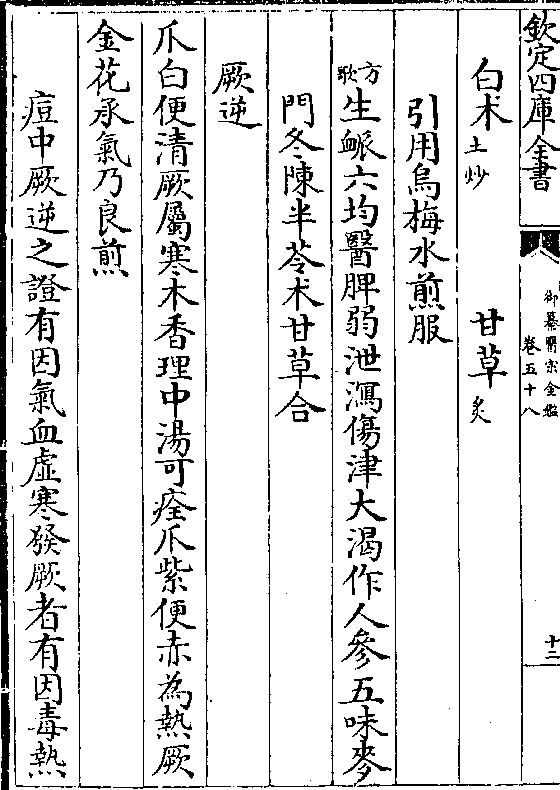 欽定四庫全書
御纂醫宗金鑑
卷五十八
十三
白朮土炒　甘草炙
引用烏梅水煎服
方歌 生脈六均醫脾弱泄瀉傷津大渴作人參五味麥
門冬陳半苓朮甘草合
厥逆
爪白便清厥屬寒木香理中湯可痊爪紫便赤為熱厥
金花承氣乃良煎
痘中厥逆之證有因氣血虛寒發厥者有因毒熱